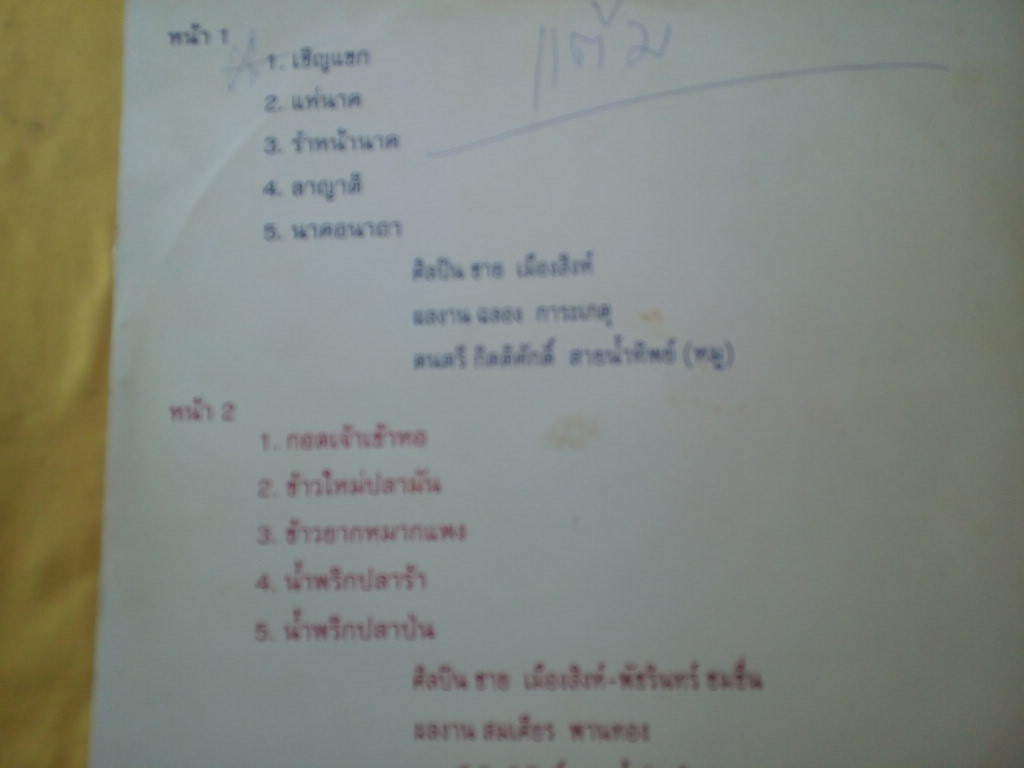 แต้ม
หน้า 1
1. เชิญแขก
2. แห่นาค
3. รำหน้านาค
4. ลาญาติ
5. นาคอนาถา
ศิลปิน ชาย เมืองสิงห์
ผลงาน ฉลอง การะเกตุ
ดนตรี กิตติศักดิ์ สายน้ำทิพย์ (หมู)
หน้า 2
1. กอดเจ้าเข้าหอ
2. ข้าวใหม่ปลามัน
3. ข้าวยากหมากแพง
4. น้ำพริกปลาร้า
5. น้ำพริกปลาป่น
ศิลปิน ชาย เมืองสิงห์-พัชรินทร์ ชมชื่น
ผลงาน สมเศียร พานทอง